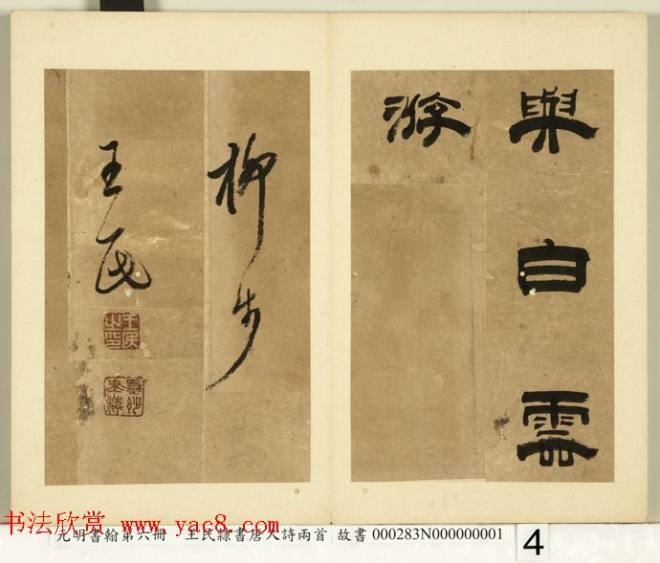 與白雲
游
柳步
王民
王民之印
书法欣赏 www.yac8.com
元明書翰第六冊 王民隸書唐人詩兩首 故書 000283N000000001
4